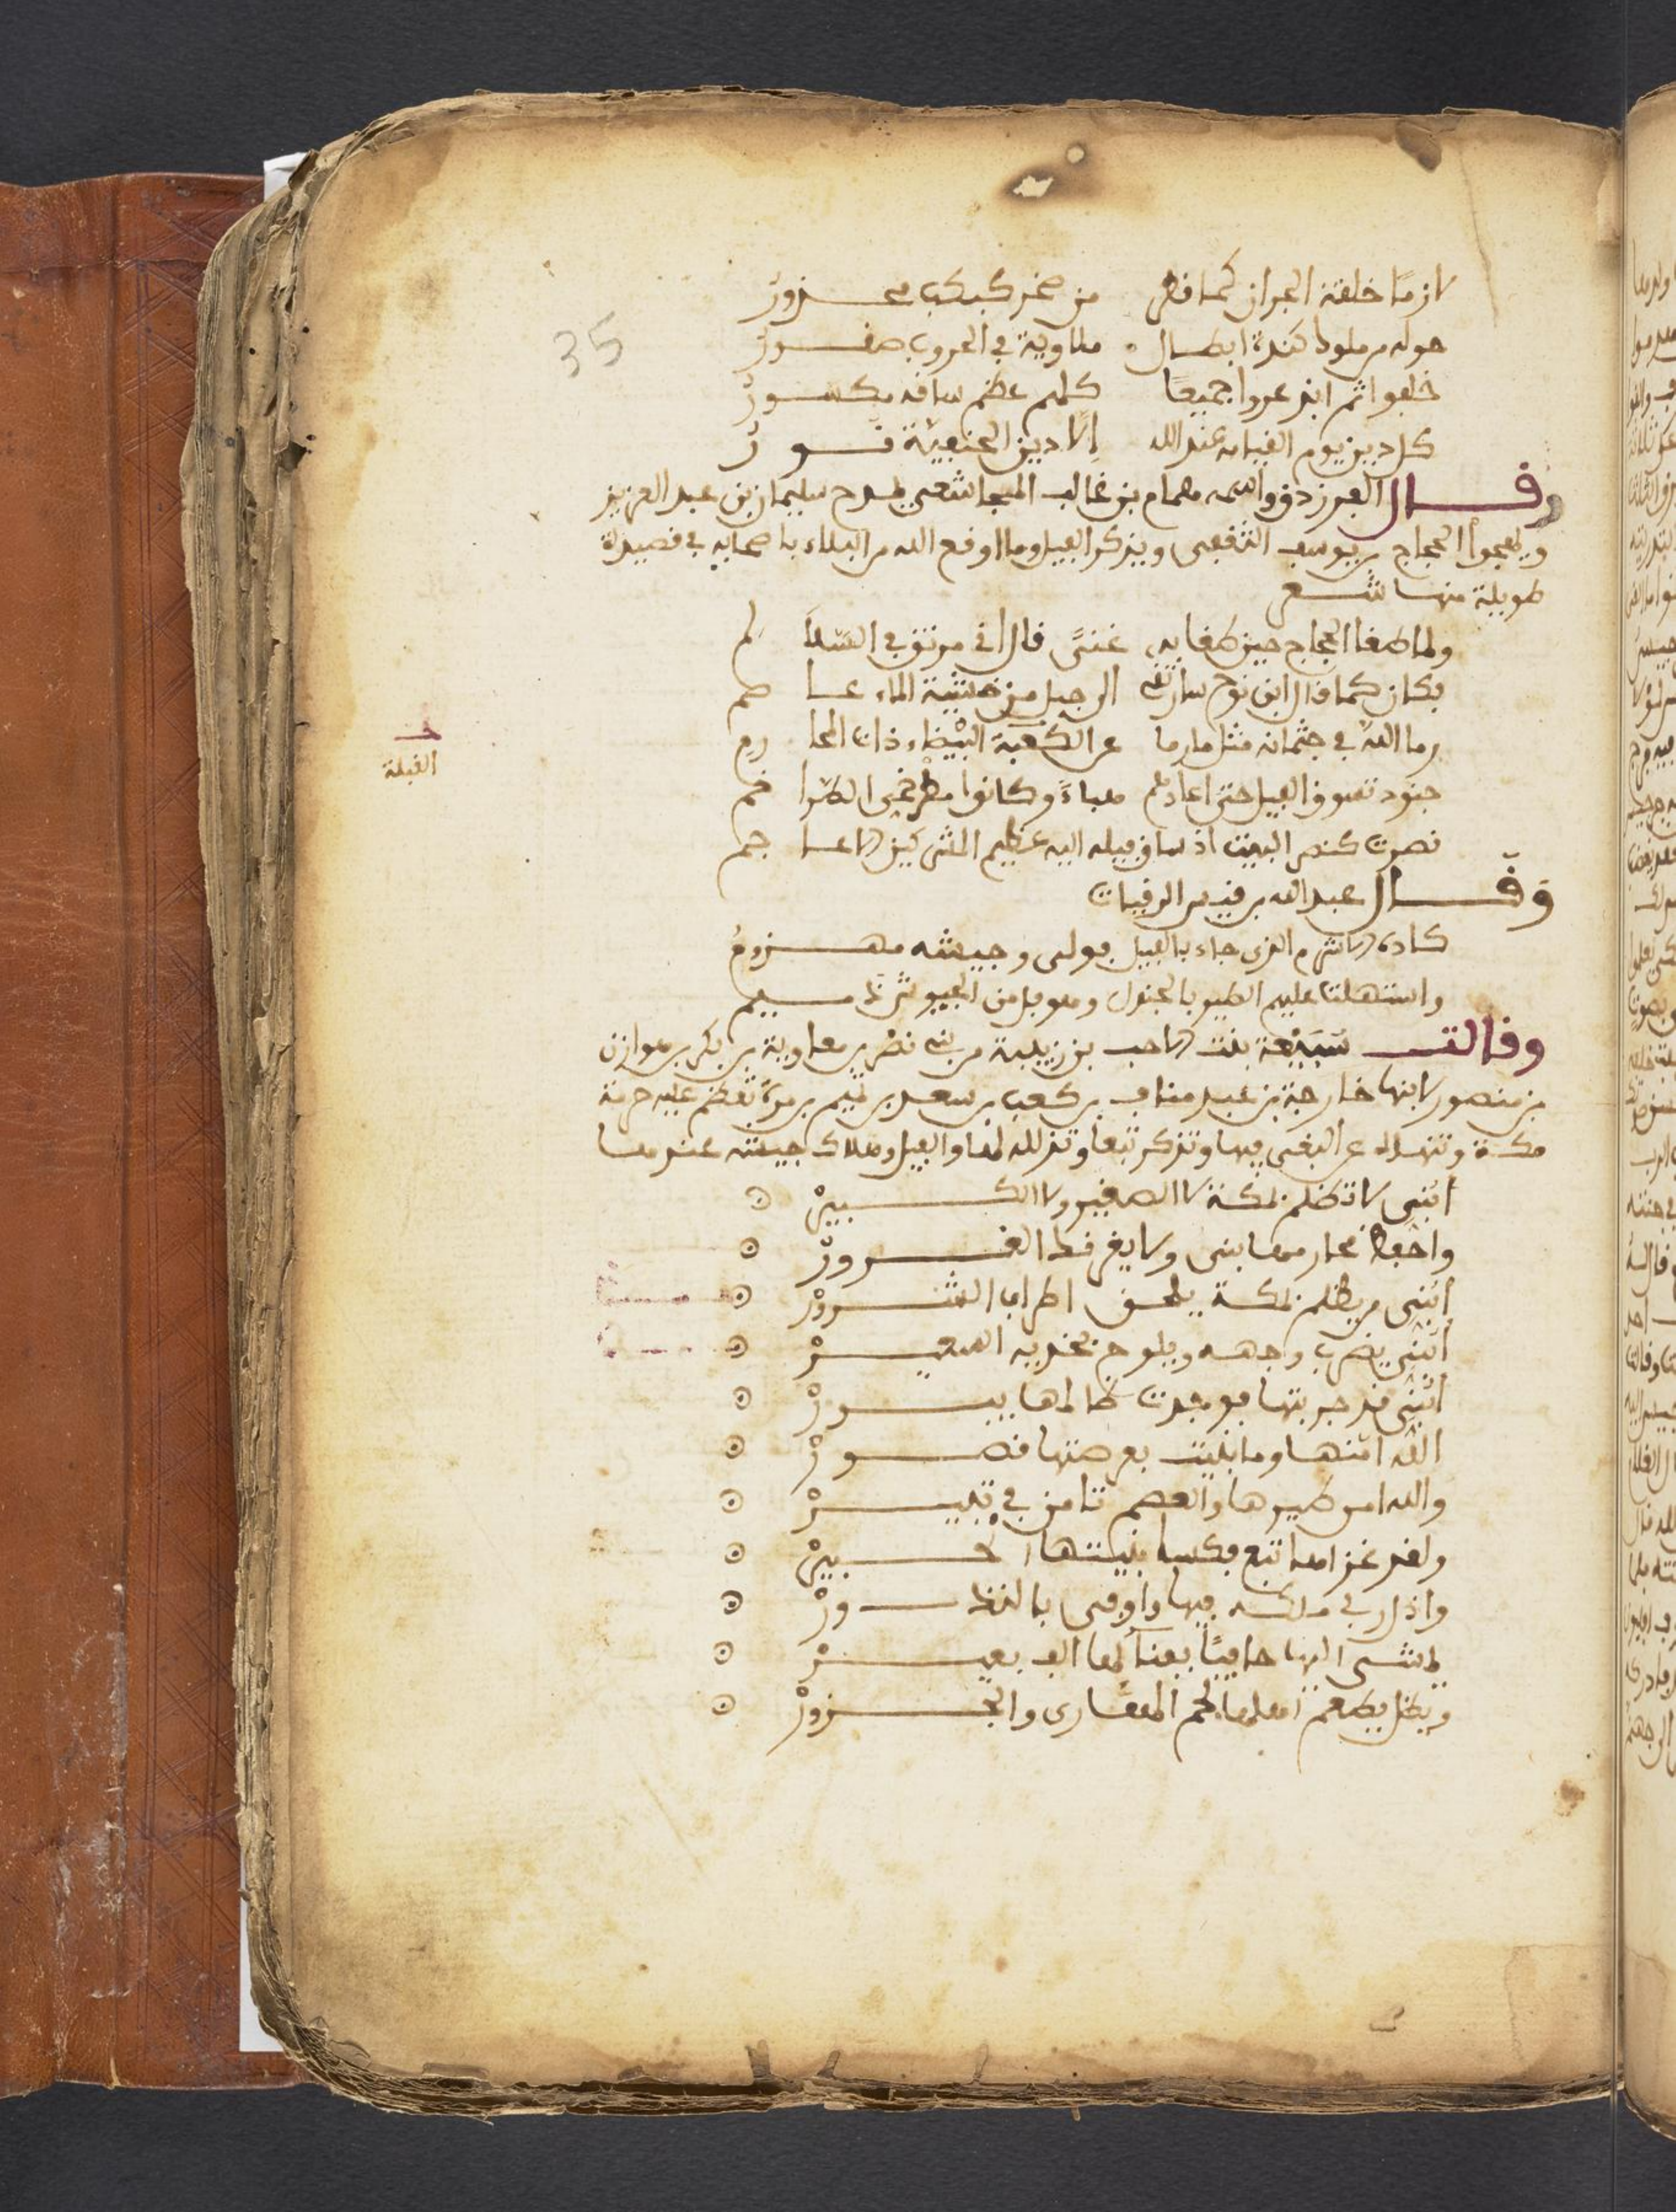 لازما حلقة الجران كما قطر من صخر كبكب محزور
حوله من ملوك كندة ابطال ملاوية في الحروب صقور
خلفوه ثم ابذعروا جميعا كلهم عظم ساقه مكسور
كل دين يوم القيامة عند الله إلا دين الحنيفية بور
وقال الفرزدق واسمه همام بن غالب المجاشعي يمدح سليمان بن عبد العزيز
ويهجوا الحجاج بن يوسف الثقفي ويذكر الفيل وما اوقع الله من البلاء باصحابه في قصيدة
طويلة منها شعر
ولما طغا الحجاج حين طغا به غنى قال اني مرتق في السلالم
فكان كما قال ابن نوح سارتقي الى جبل من خشية الماء عاصم
رما الله في جثمانه مثل ما رما عن الكعبة البيضاء ذات المحارم
جنود تسوق الفيل حتى اعادهم هباء وكانوا مطرخمي الطراخم
نصرت كنصر البيت اذ ساق فيله اليه عظيم المشركين الاعاجم
وقال عبد الله بن قيس الرقيات
كاده الاشرم الذي جاء بالفيل فولى وجيشه مهزوم
واستهلت عليهم الطير بالجندل وهو فل من الجيوش ذميم
وقالت سبيعة بنت الاحب بن زبيبة من بني نصر بن معاوية بن بكر بن هوازن
بن منصور لابنها خارجة بن عبد مناف بن كعب بن سعد بن تميم بن مرة تعظم عليه حرمة
مكة وتنهاه عن البغي فيها وتذكر تبعا وتذلله لها والفيل وهلاك جيشه عندها
أبني لا تظلم بمكة لا الصغير ولا الكبير
واحفظ محارمها بني ولا يغرنك الغرور
أبني من يظلم بمكة يلق اطراف الشرور
أبني يضرب وجهه ويلوح بخديه السعير
أبني قد جربتها فوجدت ظالمها يبور
الله امنها وما بنيت بعرصتها قصور
والله امن طيرها والعصم تامن في ثبير
ولقد غزاها تبع فكسا بنيتها الحبير
واذل ربي ملكه فيها واوفى بالنذور
يمشي اليها حافيا بفنائها الف بعير
ويظل يطعم اهلها لحم المهارى والجزور
35
القبلة